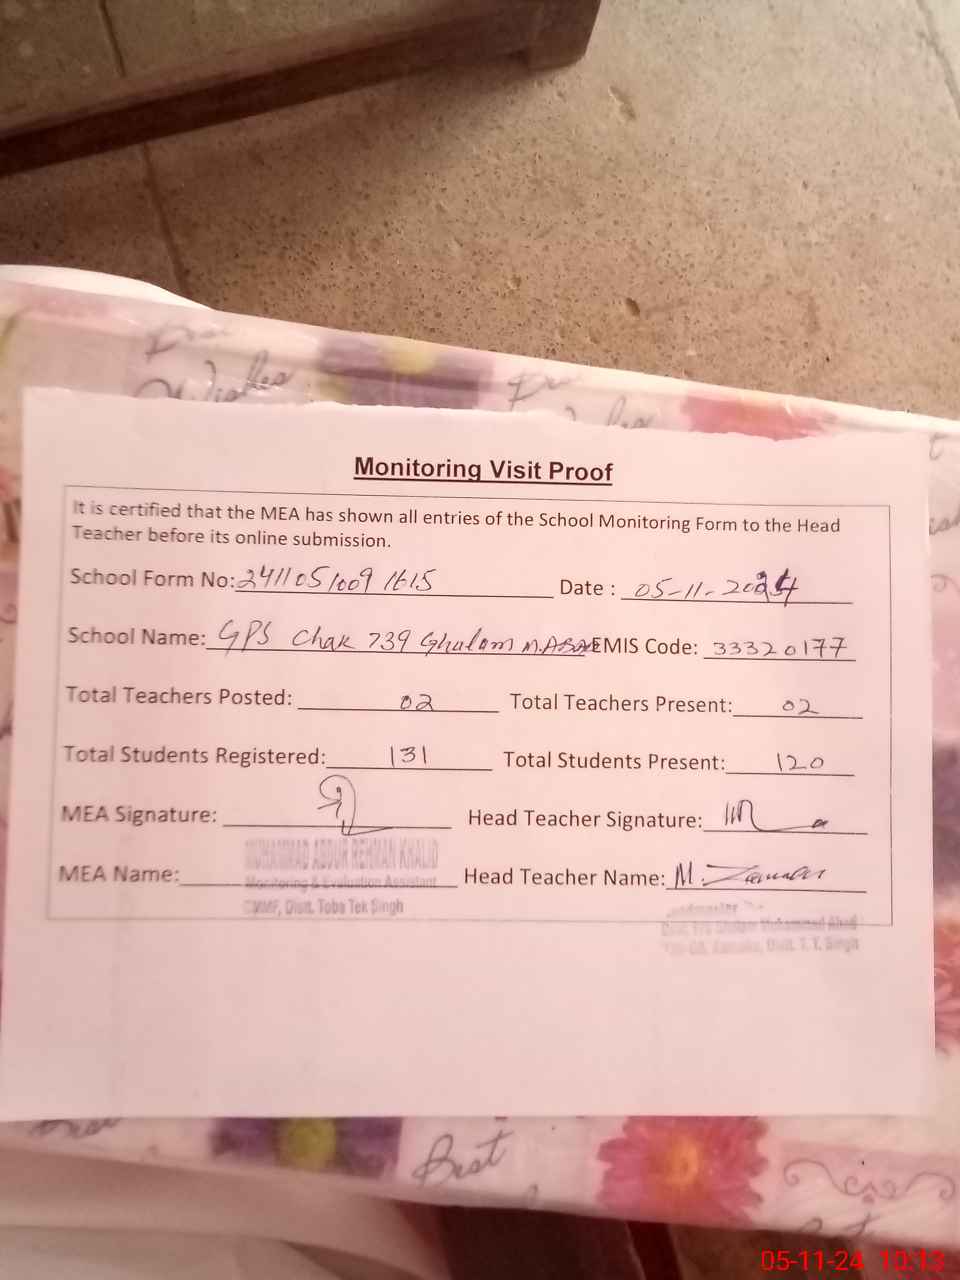 Wishes
Monitoring Visit Proof
It is certified that the MEA has shown all entries of the School Monitoring Form to the Head
Teacher before its online submission.
School Form No: 2411051009 1615 Date : 05-11-2024
School Name: GPS Chak 739 Ghulam M.ABAD EMIS Code: 33320177
Total Teachers Posted: 02 Total Teachers Present: 02
Total Students Registered: 131 Total Students Present: 120
MEA Signature: Head Teacher Signature:
MUHAMMAD ABDUR REHMAN KHALID
MEA Name: Head Teacher Name: M.
Monitoring & Evaluation Assistant
CMMF, Distt. Toba Tek Singh
Ghulam Muhammad Abad
Distt. T.T. Singh
Best
05-11-24 10:13